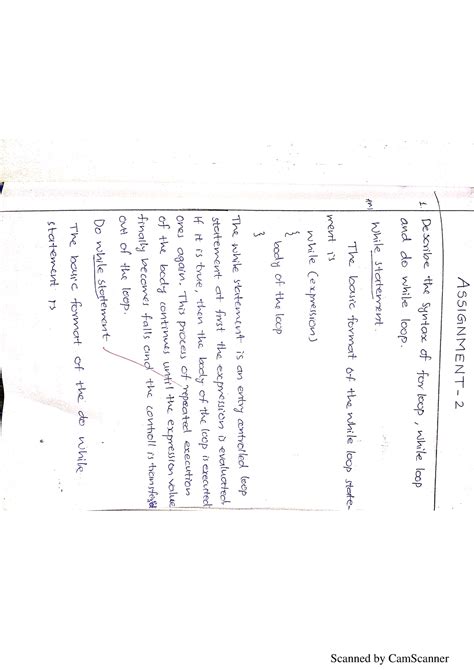 ASSIGNMENT-2
1. Describe the syntax of for loop, while loop
and do while loop.
Ans) While statement.
The basic format of the while loop state-
ment is
while (expression)
{
body of the loop
}
The while statement is an entry controlled loop
statement at first the expression is evaluated
If it is true, then the body of the loop is executed
ones again. This process of repeated execution
of the body continues until the expression value
finally becomes falls and the controll is transfer
out of the loop.
Do while statement
The basic format of the do while
statement is
Scanned by CamScanner